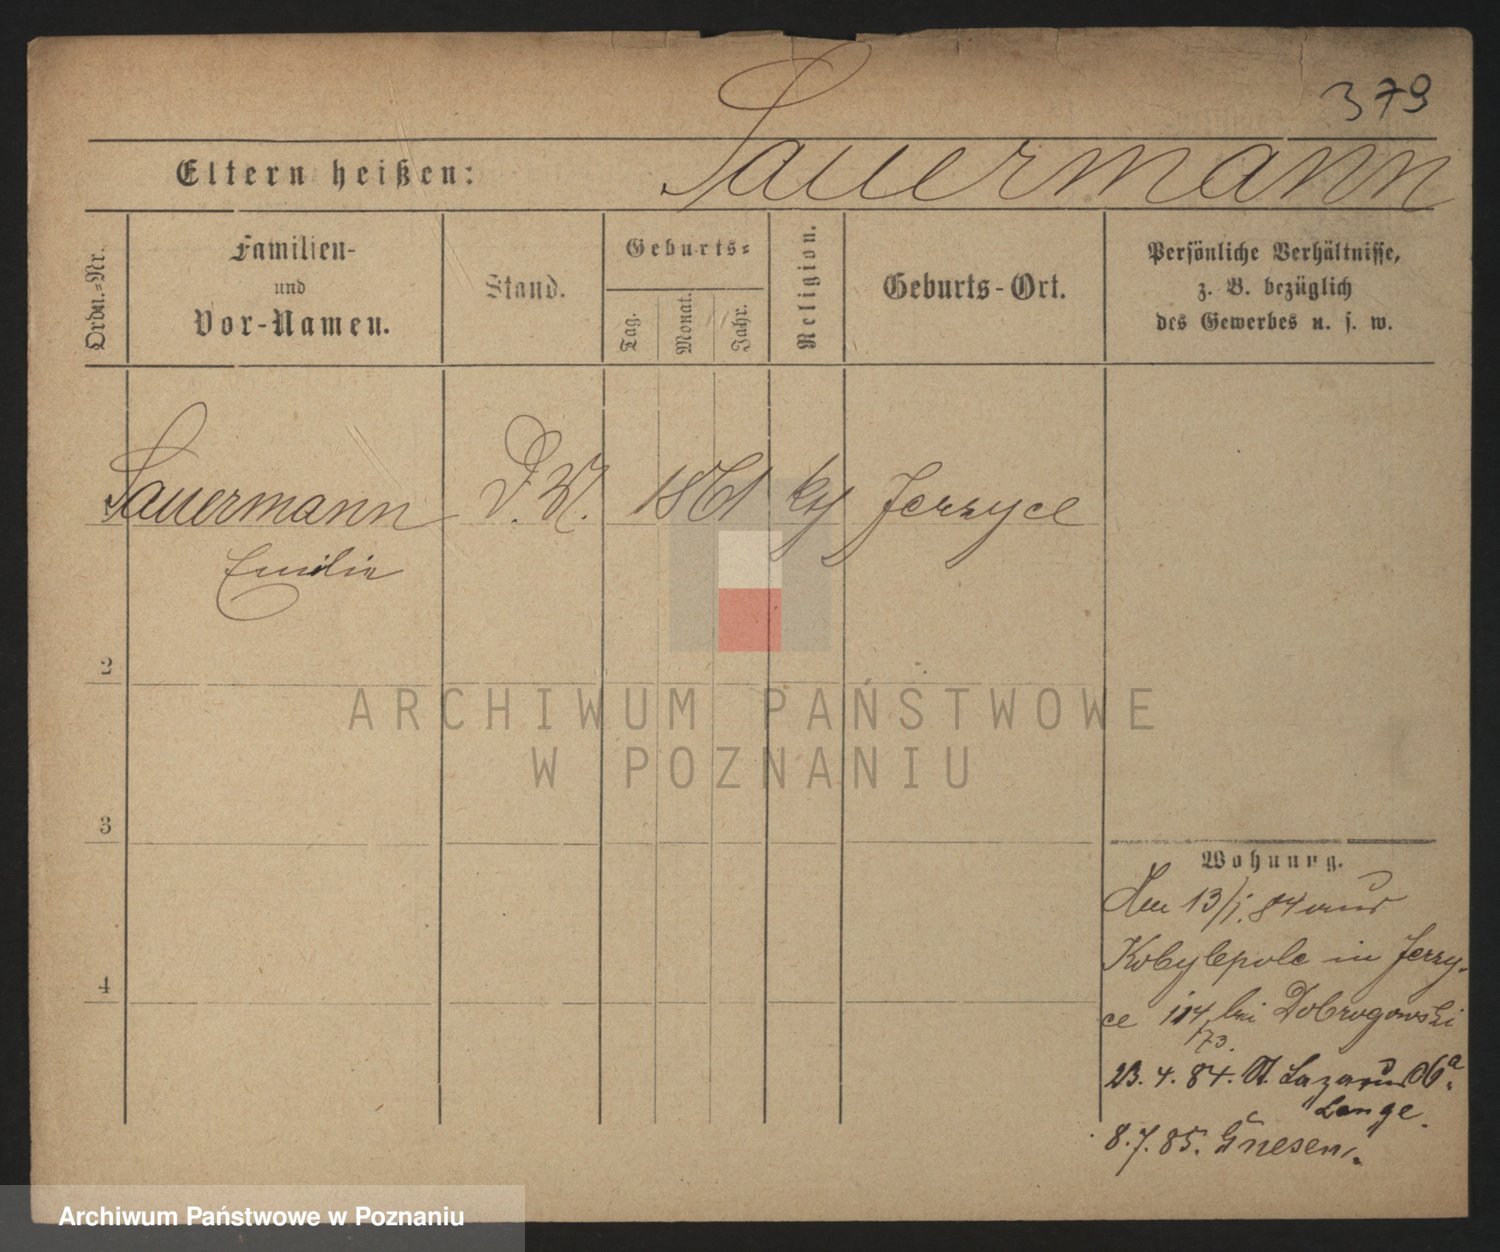 379
Eltern heißen: Sauermann
Ordn.-Nr.
Familien-
und
Vor-Namen.
Stand.
Geburts-
Tag.
Monat.
Jahr.
Religion.
Geburts-Ort.
Persönliche Verhältnisse,
z. B. bezüglich
des Gewerbes u. s. w.
Sauermann
Emilie
1861
Jerzyce
2
3
4
ARCHIWUM PAŃSTWOWE
W POZNANIU
Wohnung.
13/1. 84 aus
Kobylepole in Jerzy-
ce 114 bei Dobrogowski
173.
23. 4. 84. St. Lazarus 
Lange.
8. 7. 85. Gnesen.
Archiwum Państwowe w Poznaniu